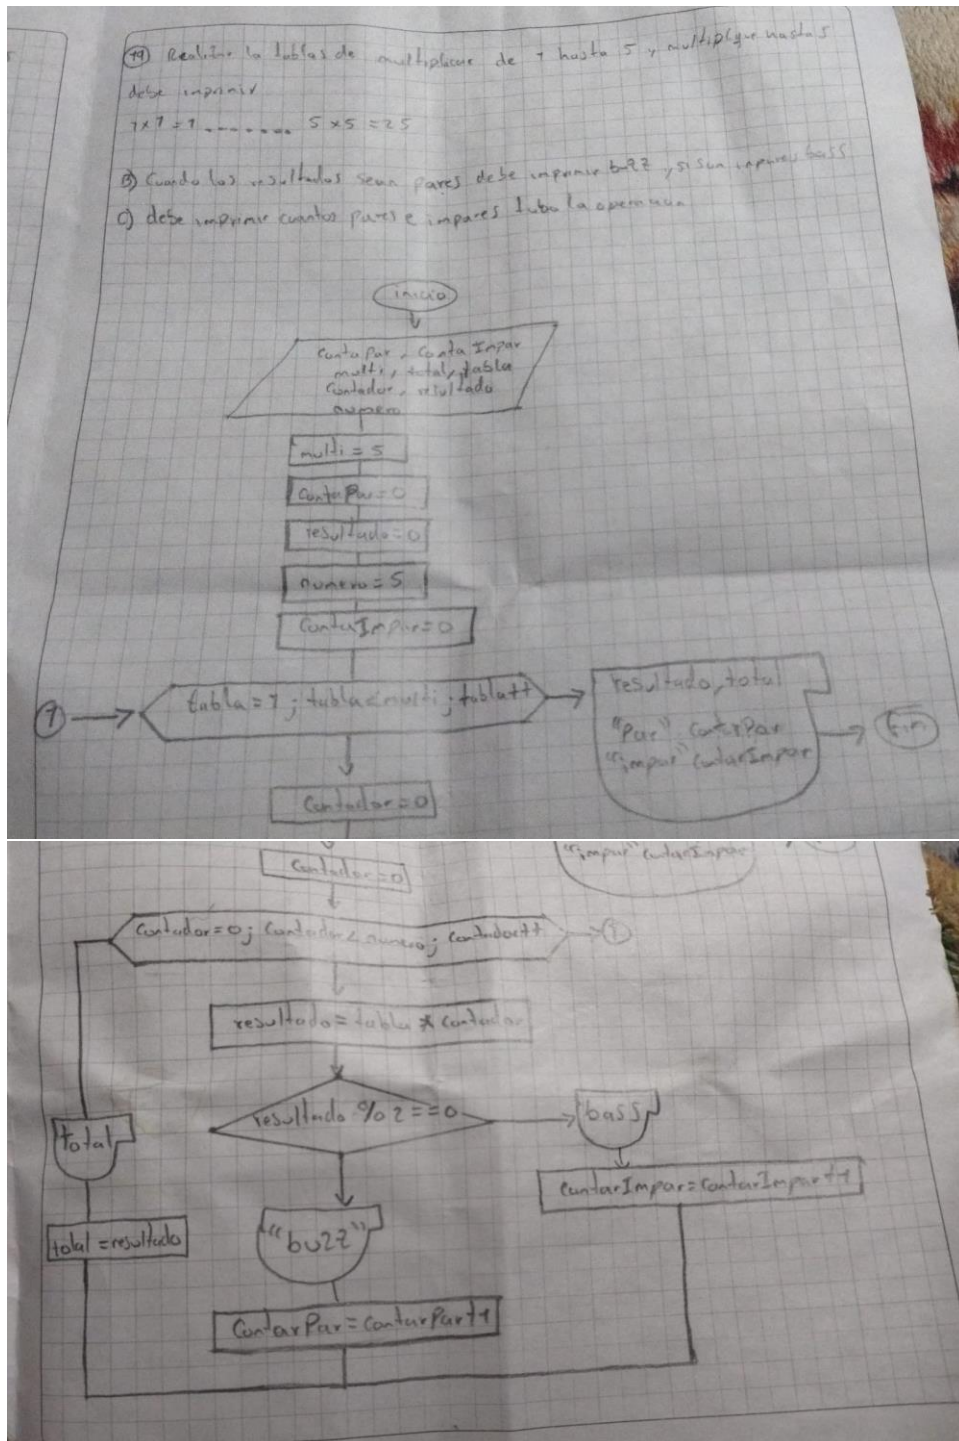 19) Realizar la tablas de multiplicar de 1 hasta 5 y multiplique hasta 5
debe imprimir
1x1=1........ 5x5=25
B) Cuando los resultados sean pares debe imprimir buzz, si son impares bass
C) debe imprimir cuantos pares e impares tubo la operacion
inicio
contaPar, ContaImpar
multi, total, tabla
contador, resultado
numero
multi = 5
contaPar=0
resultado=0
numero=5
ContarImpar=0
1
tabla=1; tabla<multi; tabla++
resultado, total
"Par" contarPar
"impar" contarImpar
fin
Contador=0
"impar" contarImpar
Contador=0
Contador=0; Contador<numero; contador++
1
resultado=tabla * contador
resultado %2==0
bass
total
contarImpar=contarImpar+1
"buzz"
total=resultado
ContarPar=contarPar+1